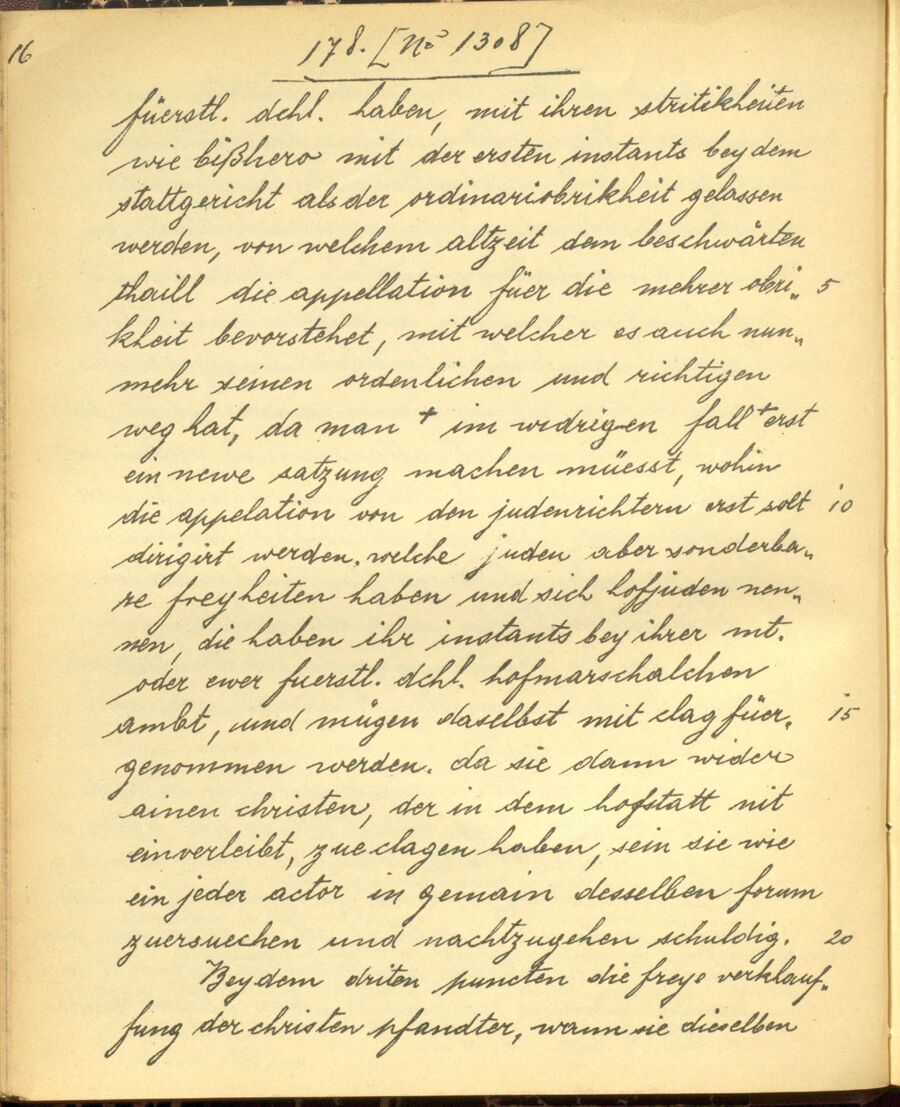 16
178. [No 1308]
füerstl. dchl. haben, mit ihren stritikheiten
wie bißhero mit der ersten instants bey dem
stattgericht als der ordinariobrikheit gelassen
werden, von welchem altzeit dem beschwärten
thaill die appellation füer die mehrer obri„ 5
kheit bevorstehet, mit welcher es auch nun„
mehr seinen ordenlichen und richtigen
weg hat, da man + im widrigen fall + erst
ein newe satzung machen müesst, wohin
die appelation von den judenrichtern erst solt 10
dirigirt werden. welche juden aber sonderba„
re freyheiten haben und sich hofjuden nen„
nen, die haben ihr instants bey ihrer mt.
oder ewer fuerstl. dchl. hofmarschalchen
ambt, und mügen daselbst mit clag füer„ 15
genommen werden. da sie dann wider
ainen christen, der in dem hofstatt nit
einverleibt, zue clagen haben, sein sie wie
ein jeder actor in gemain desselben forum
zuersuechen und nachtzugehen schuldig. 20
Bey dem driten puncten die freye verklauf„
fung der christen pfandter, wann sie dieselben